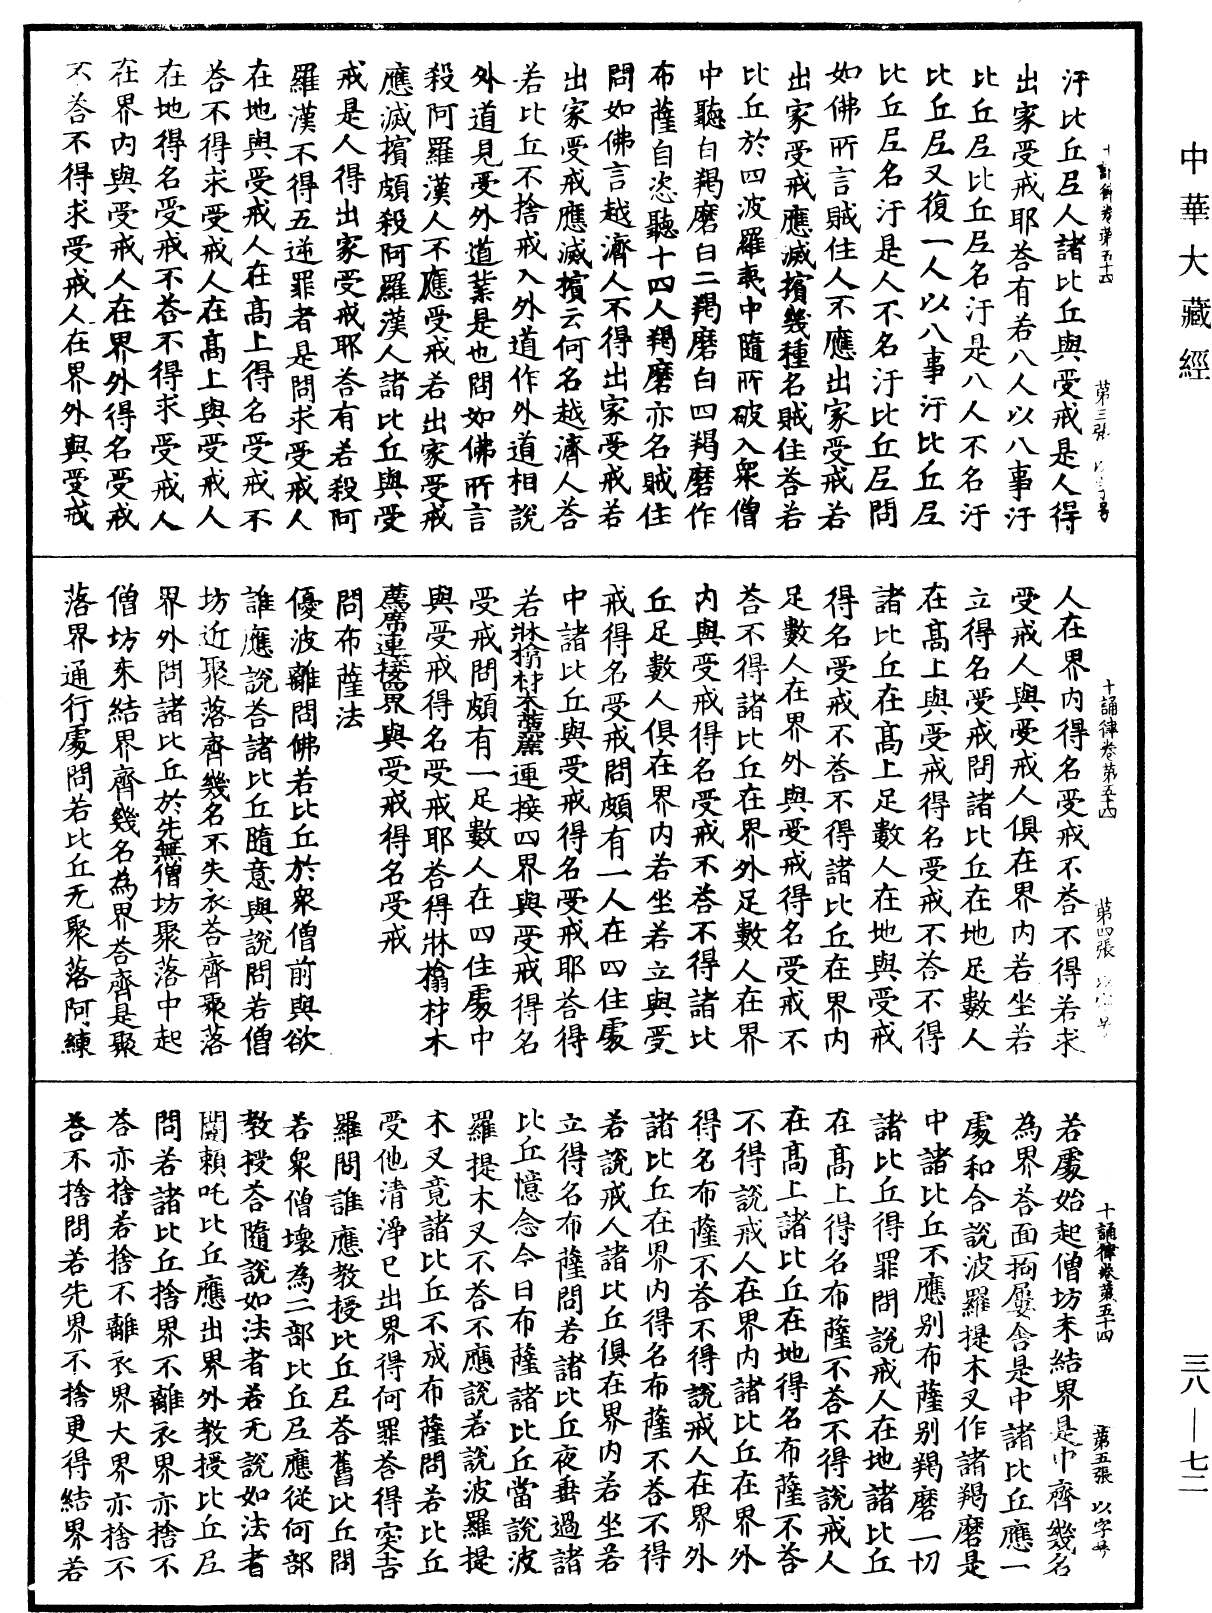 中華大藏經
十誦律卷第五十四 第三張
汙比丘尼人諸比丘與受戒是人得
出家受戒耶荅有若八人以八事汙
比丘尼比丘尼名汙是八人不名汙
比丘尼又復一人以八事汙比丘尼
比丘尼名汙是人不名汙比丘尼問
如佛所言賊住人不應出家受戒若
出家受戒應滅擯幾種名賊住荅若
比丘於四波羅夷中隨所破入眾僧
中聽白羯磨白二羯磨白四羯磨作
布薩自恣聽十四人羯磨亦名賊住
問如佛言越濟人不得出家受戒若
出家受戒應滅擯云何名越濟人荅
若比丘不捨戒入外道作外道相說
外道見受外道業是也問如佛所言
殺阿羅漢人不應受戒若出家受戒
應滅擯頗殺阿羅漢人諸比丘與受
戒是人得出家受戒耶荅有若殺阿
羅漢不得五逆罪者是問求受戒人
在地與受戒人在高上得名受戒不
荅不得求受戒人在高上與受戒人
在地得名受戒不荅不得求受戒人
在界內與受戒人在界外得名受戒
不荅不得求受戒人在界外與受戒
十誦律卷第五十四 第四張
人在界內得名受戒不荅不得若求
受戒人與受戒人俱在界內若坐若
立得名受戒問諸比丘在地足數人
在高上與受戒得名受戒不荅不得
諸比丘在高上足數人在地與受戒
得名受戒不荅不得諸比丘在界內
足數人在界外與受戒得名受戒不
荅不得諸比丘在界外足數人在界
內與受戒得名受戒不荅不得諸比
丘足數人俱在界內若坐若立與受
戒得名受戒問頗有一人在四住處
中諸比丘與受戒得名受戒耶荅得
若牀榻材木薦席連接四界與受戒得名
受戒問頗有一足數人在四住處中
與受戒得名受戒耶荅得牀榻材木
薦席連接四界與受戒得名受戒
問布薩法
優波離問佛若比丘於眾僧前與欲
誰應說荅諸比丘隨意與說問若僧
坊近聚落齊幾名不失衣荅齊聚落
界外問諸比丘於先無僧坊聚落中起
僧坊未結界齊幾名為界荅齊是聚
落界通行處問若比丘无聚落阿練
十誦律卷第五十四 第五張 以字号
若處始起僧坊未結界是中齊幾名
為界荅面一拘屢舍是中諸比丘應一
處和合說波羅提木叉作諸羯磨是
中諸比丘不應別布薩別羯磨一切
諸比丘得罪問說戒人在地諸比丘
在高上得名布薩不荅不得說戒人
在高上諸比丘在地得名布薩不荅
不得說戒人在界內諸比丘在界外
得名布薩不荅不得說戒人在界外
諸比丘在界內得名布薩不荅不得
若說戒人諸比丘俱在界內若坐若
立得名布薩問若諸比丘夜垂過諸
比丘憶念今日布薩諸比丘當說波
羅提木叉不荅不應說若說波羅提
木叉竟諸比丘不成布薩問若比丘
受他清淨已出界得何罪荅得突吉
羅問誰應教授比丘尼荅舊比丘問
若眾僧壞為二部比丘尼應從何部
教授荅隨說如法者若无說如法者
闥賴吒比丘應出界外教授比丘尼
問若諸比丘捨界不離衣界亦捨不
荅亦捨若捨不離衣界大界亦捨不
荅不捨問若先界不捨更得結界若
三八—七二